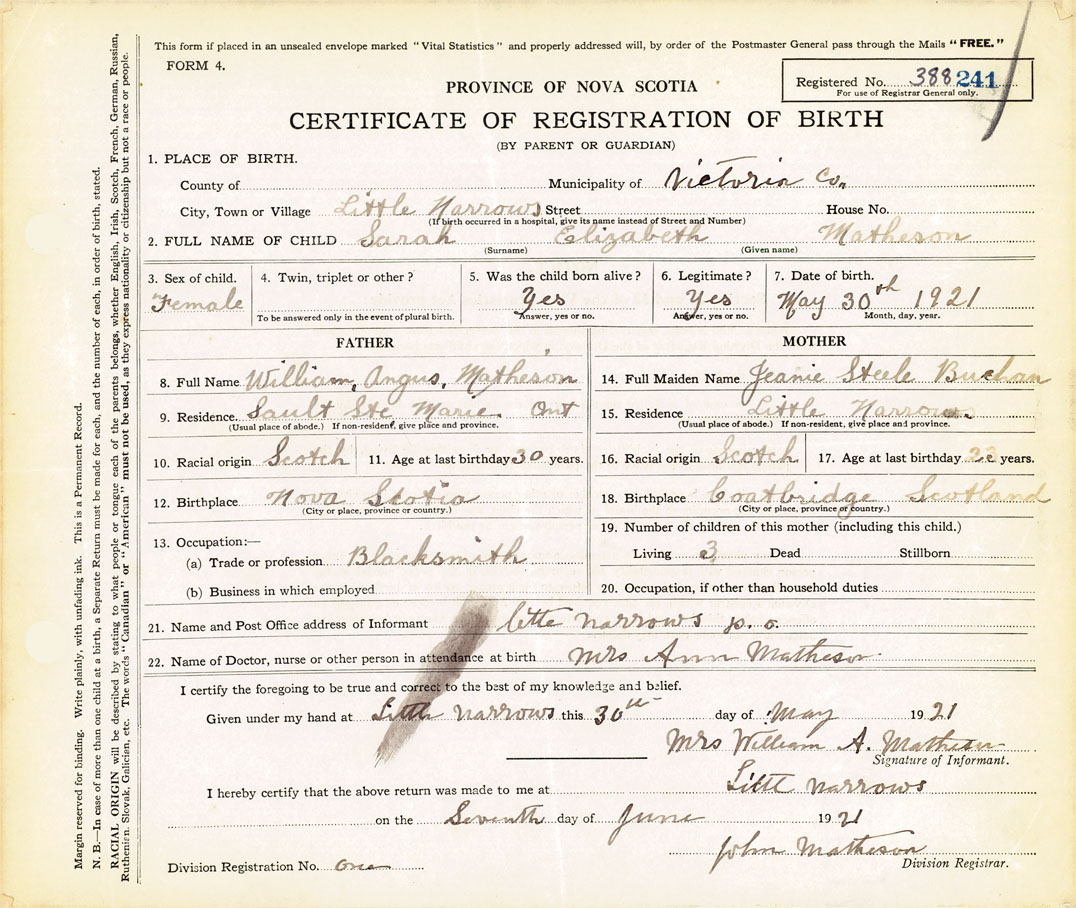 This form if placed in an unsealed envelope marked "Vital Statistics" and properly addressed will, by order of the Postmaster General pass through the Mails "FREE."
FORM 4.
Registered No. 388 241
For use of Registrar General only.
PROVINCE OF NOVA SCOTIA
CERTIFICATE OF REGISTRATION OF BIRTH
(BY PARENT OR GUARDIAN)
1. PLACE OF BIRTH.
County of Municipality of Victoria Co.
City, Town or Village Little Narrows Street House No.
(If birth occurred in a hospital, give its name instead of Street and Number)
2. FULL NAME OF CHILD Sarah Elizabeth Matheson
(Surname) (Given name)
3. Sex of child. 4. Twin, triplet or other? 5. Was the child born alive? 6. Legitimate? 7. Date of birth.
Female Yes Yes May 30th 1921
To be answered only in the event of plural birth. Answer, yes or no. Answer, yes or no. Month, day, year.
FATHER
8. Full Name William, Angus, Matheson
9. Residence. Sault Ste Marie. Ont
(Usual place of abode.) If non-resident, give place and province.
10. Racial origin Scotch 11. Age at last birthday 30 years.
12. Birthplace Nova Scotia
(City or place, province or country.)
13. Occupation:—
(a) Trade or profession Blacksmith
(b) Business in which employed
MOTHER
14. Full Maiden Name Jeanie Steele Buchan
15. Residence Little Narrows.
(Usual place of abode.) If non-resident, give place and province.
16. Racial origin Scotch 17. Age at last birthday years.
18. Birthplace Coatbridge Scotland
(City or place, province or country.)
19. Number of children of this mother (including this child.)
Living 3 Dead Stillborn
20. Occupation, if other than household duties
21. Name and Post Office address of Informant little narrows p. o.
22. Name of Doctor, nurse or other person in attendance at birth Mrs Ann Matheson
I certify the foregoing to be true and correct to the best of my knowledge and belief.
Given under my hand at Little narrows this 30th day of May 1921
Mrs William A. Matheson
Signature of Informant.
I hereby certify that the above return was made to me at Little narrows
on the Seventh day of June 1921
John Matheson
Division Registrar.
Division Registration No. one
Margin reserved for binding. Write plainly, with unfading ink. This is a Permanent Record.
N. B.—In case of more than one child at a birth, a Separate Return must be made for each, and the number of each, in order of birth, stated.
RACIAL ORIGIN will be described by stating to what people or tongue each of the parents belongs, whether English, Irish, Scotch, French, German, Russian,
Ruthenian, Slovak, Galician, etc. The words "Canadian" or "American" must not be used, as they express nationality or citizenship but not a race or people.